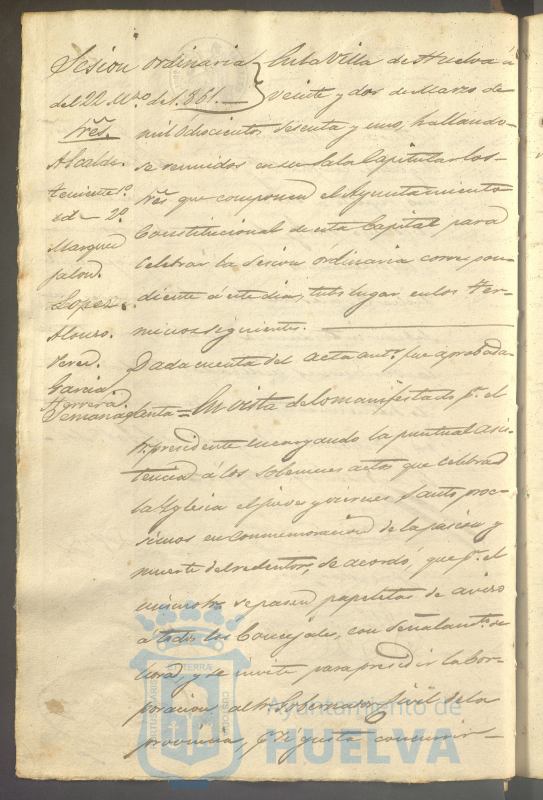 Sesion ordinaria
del 22 Mzo. del 861.
Sres.
Alcalde.
Teniente 1º
id. 2º
Marquez
Jalon.
Lopez.
Alonso.
Perez.
Garcia
Herrera
Semana Santa =
En la Villa de Huelva á
veinte y dos de Marzo de
mil Ochocientos sesenta y uno, hallando-
se reunidos en su Sala Capitular los
Sres. que componen el Ayuntamiento
Constitucional de esta Capital para
celebrar la Sesion ordinaria correspon-
diente á este dia, tubo lugar en los ter-
minos siguientes.
Dada cuenta del acta antr. fue aprobada.
En vista de lo manifestado pr. el
Sr. presidente encargando la puntual asis-
tencia á los Solemnes actos que celebra
la Yglesia el jueves y viernes Santo proc-
simos en conmemoracion de la pasion y
muerte del redentor, se acordó, que pr. el
mismo se pasen papeletas de aviso
a todos los Concejales, con Señalamto. de
hora, y se invite para presidir la Cor-
poracion al Sr. Gobernador Civil de la
provincia, si gusta concurrir
Ayuntamiento de
HUELVA